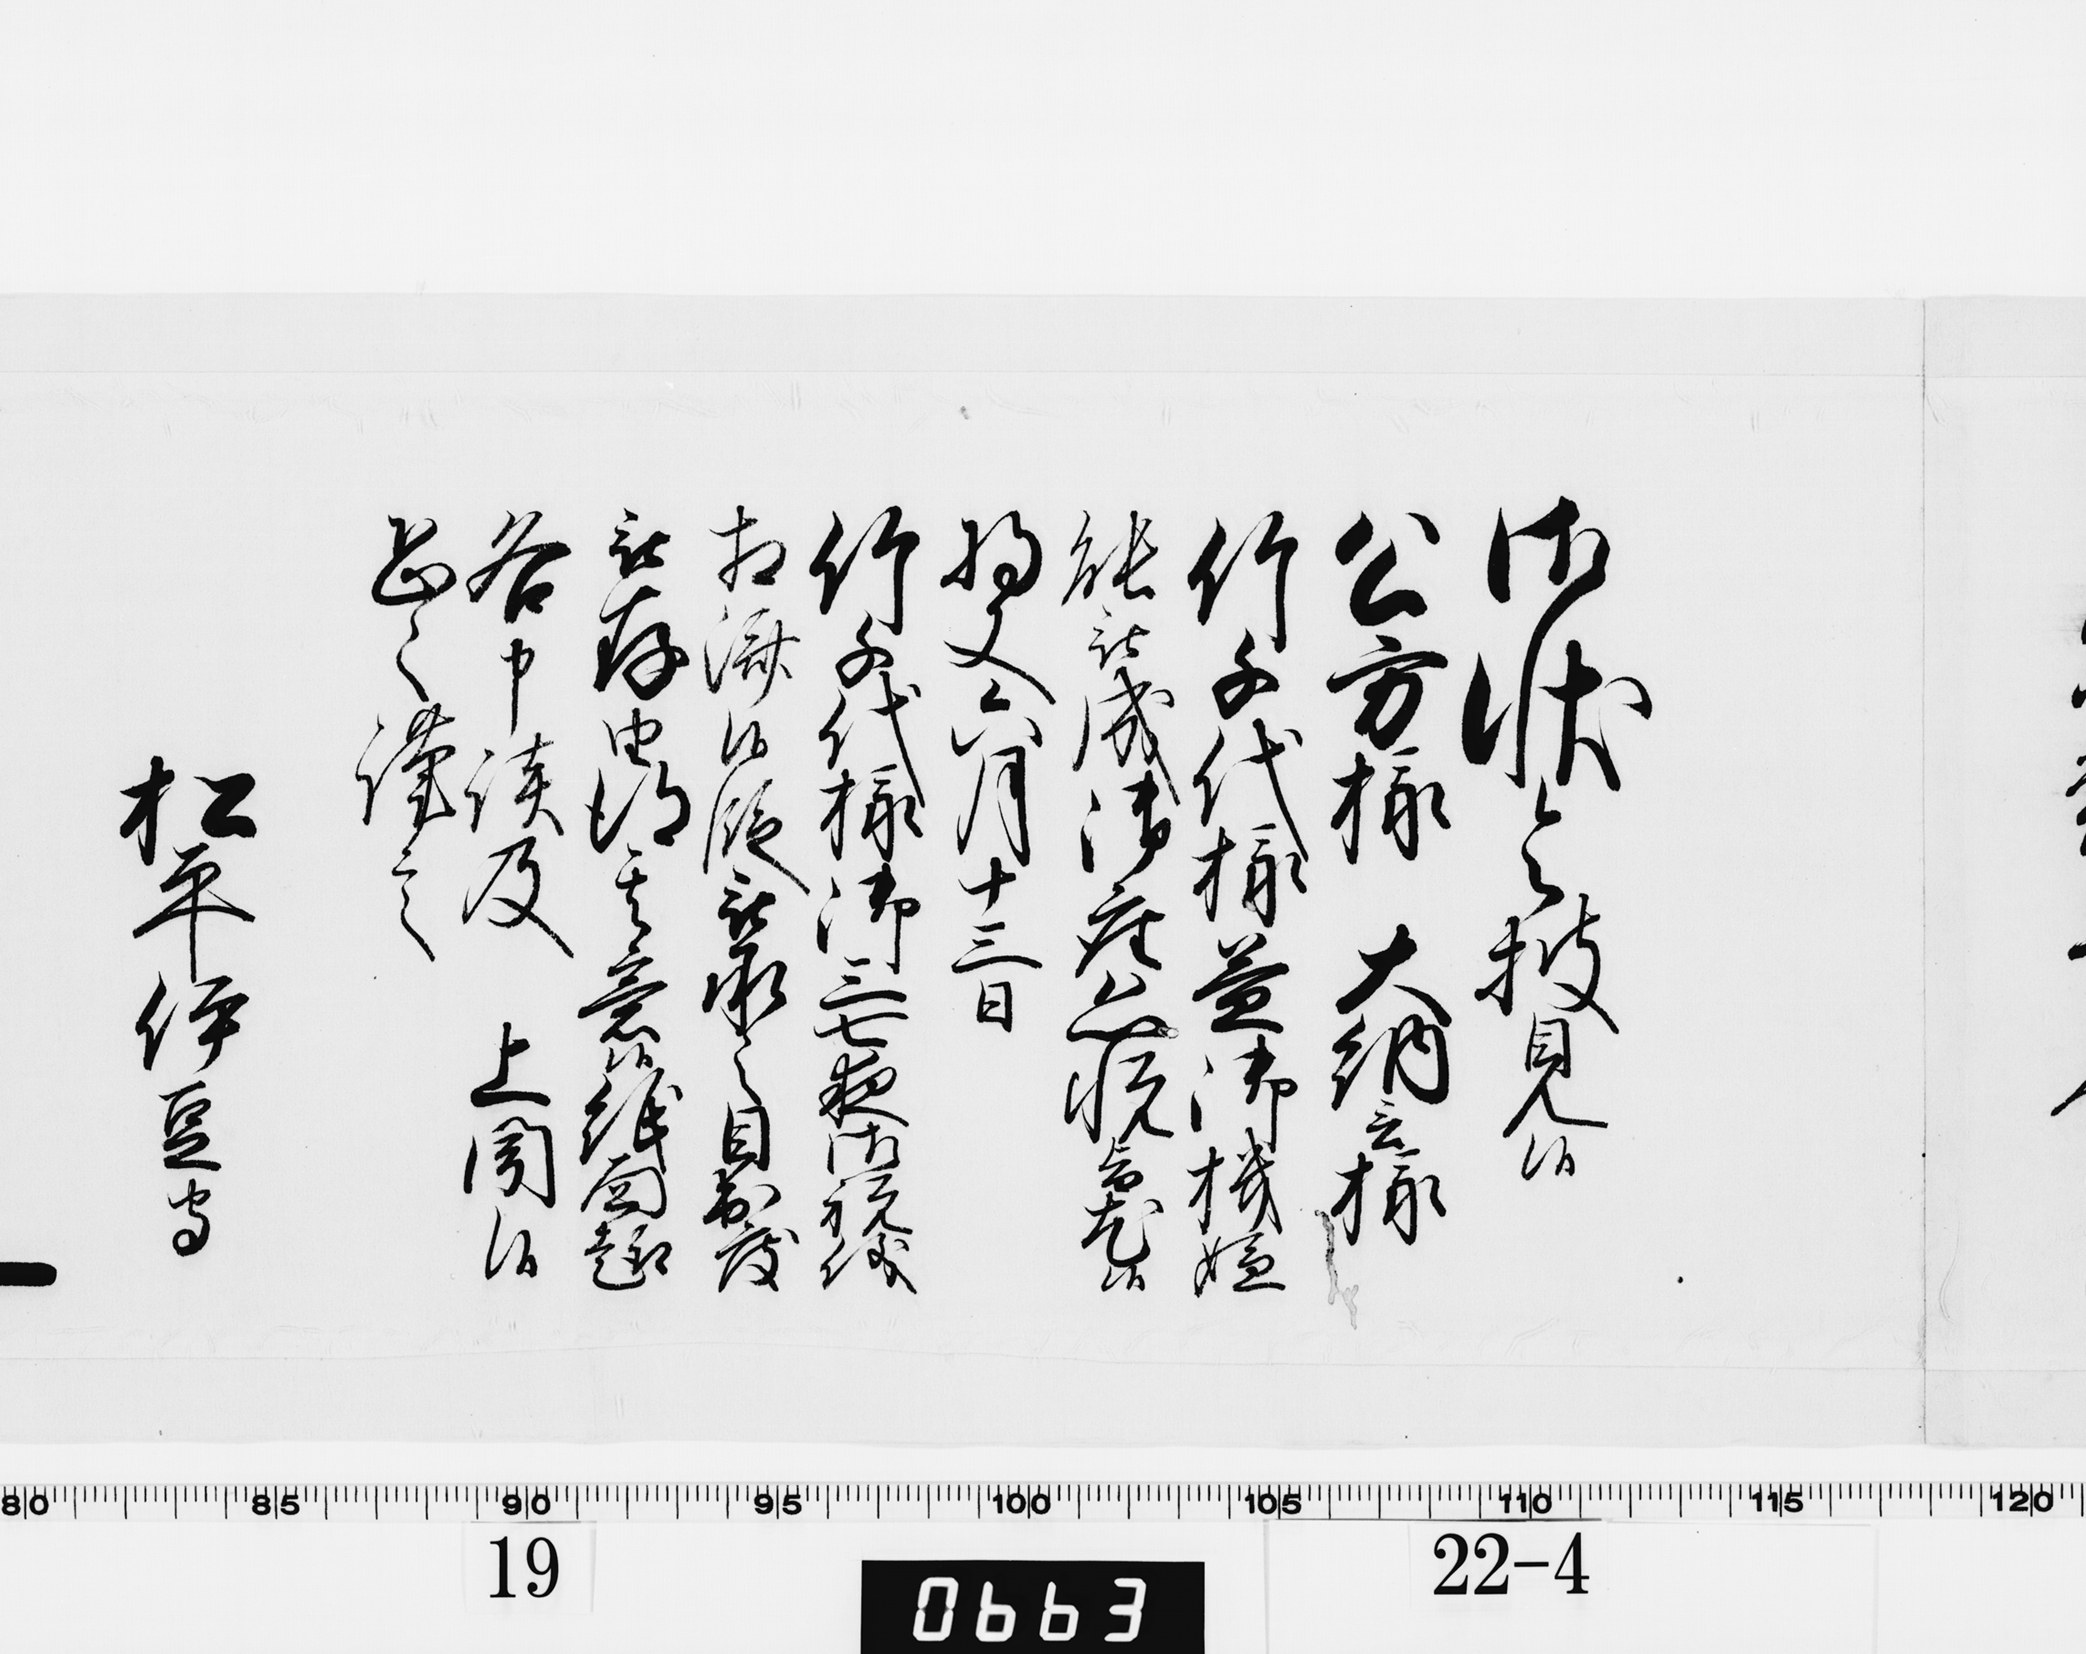 御状令披見候
公方様 大納言様
竹千代様益御機嫌
能被成御座恐悦旨尤候
将又六月十三日
竹千代様御三七夜御祝儀
相済候段被承之目出度
被存由得其意候紙面趣
各申談及 上聞候
恐々謹言
松平伊豆守
80 85 90 95 100 105 110 115 120
19
22-4
0663